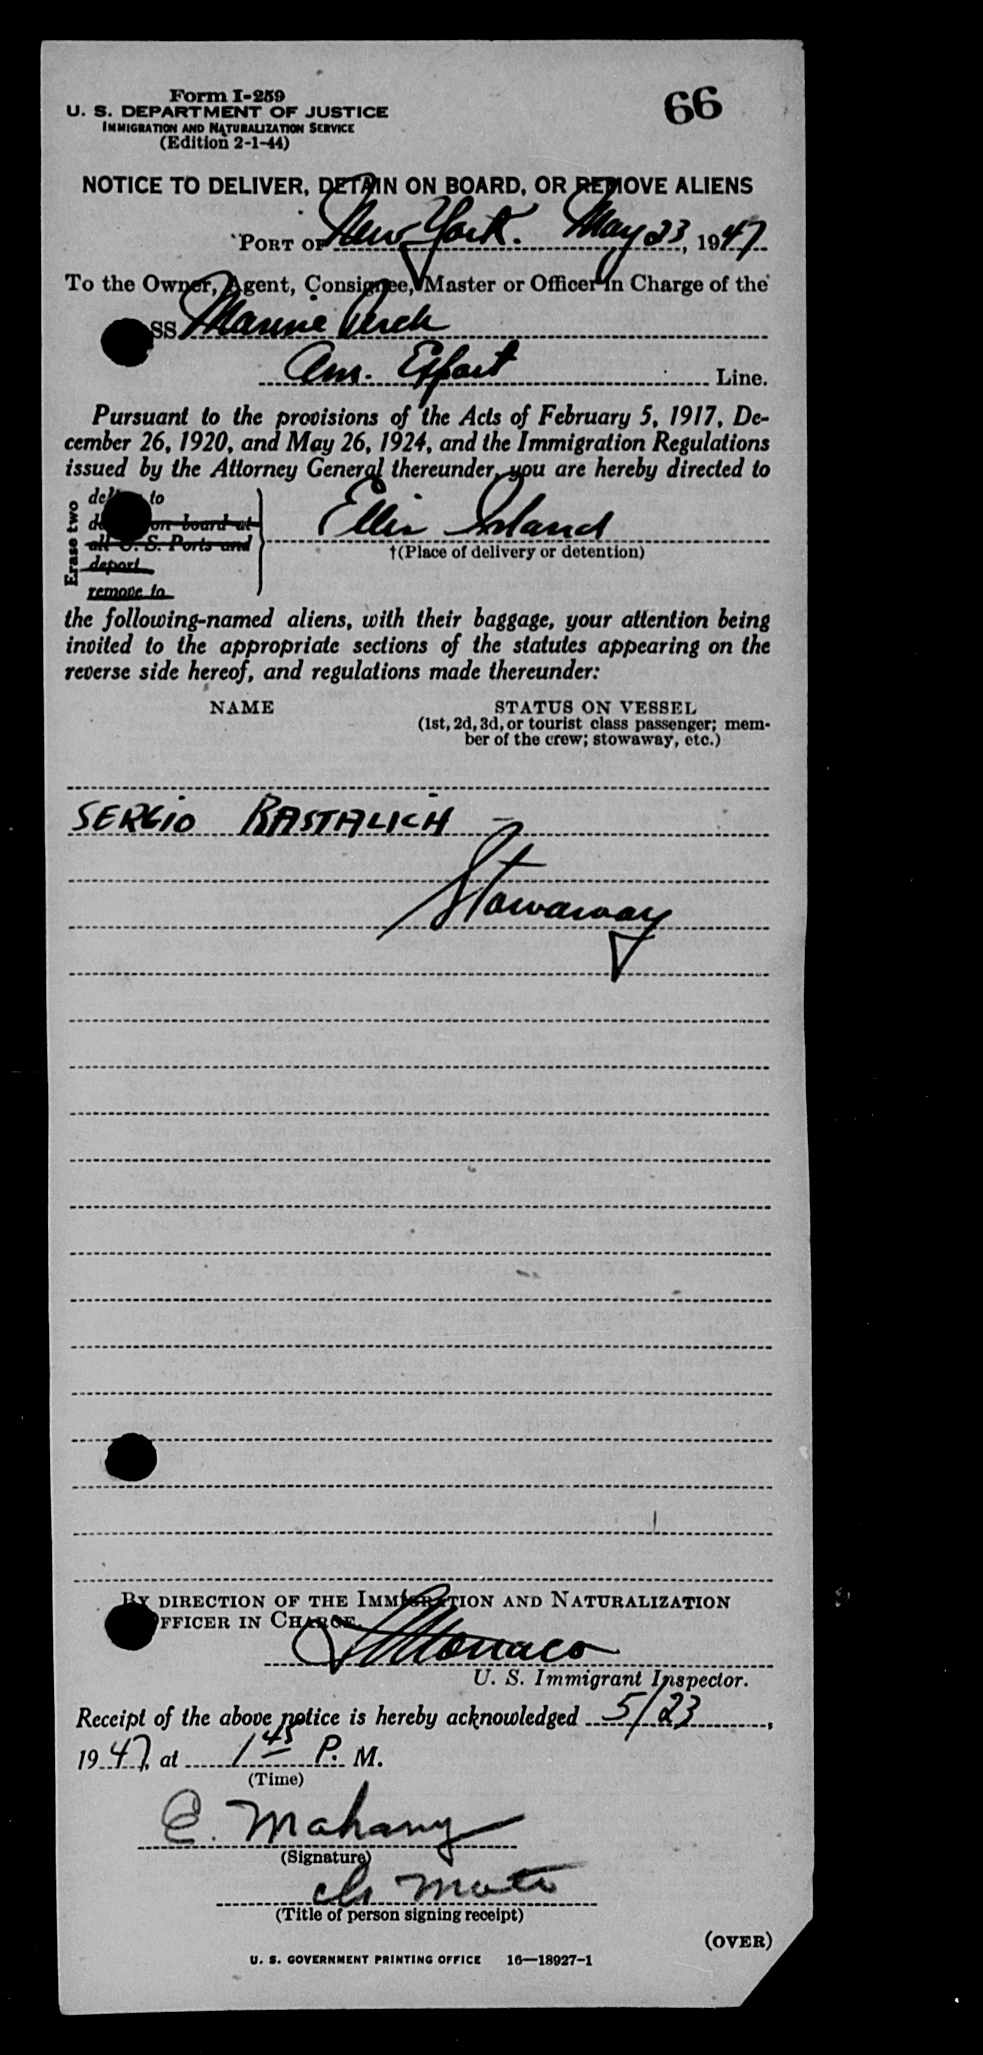 Form I-259
66
U. S. DEPARTMENT OF JUSTICE
IMMIGRATION AND NATURALIZATION SERVICE
(Edition 2-1-44)
NOTICE TO DELIVER, DETAIN ON BOARD, OR REMOVE ALIENS
PORT OF New York. May 23, 1947
To the Owner, Agent, Consignee, Master or Officer in Charge of the
SS Marine Perch
Am. Export Line.
Pursuant to the provisions of the Acts of February 5, 1917, De-
cember 26, 1920, and May 26, 1924, and the Immigration Regulations
issued by the Attorney General thereunder, you are hereby directed to
Erase two
deliver to
detain on board at
all U. S. Ports and
deport
remove to
Ellis Island
†(Place of delivery or detention)
the following-named aliens, with their baggage, your attention being
invited to the appropriate sections of the statutes appearing on the
reverse side hereof, and regulations made thereunder:
NAME STATUS ON VESSEL
(1st, 2d, 3d, or tourist class passenger; mem-
ber of the crew; stowaway, etc.)
SERGIO RASTALICH -
Stowaway
BY DIRECTION OF THE IMMIGRATION AND NATURALIZATION
OFFICER IN CHARGE
Monaco
U. S. Immigrant Inspector.
Receipt of the above notice is hereby acknowledged 5/23,
1947, at 1 45 P. M.
(Time)
E. Mahany
(Signature)
Ch Mate
(Title of person signing receipt)
(OVER)
U. S. GOVERNMENT PRINTING OFFICE 16—18927-1